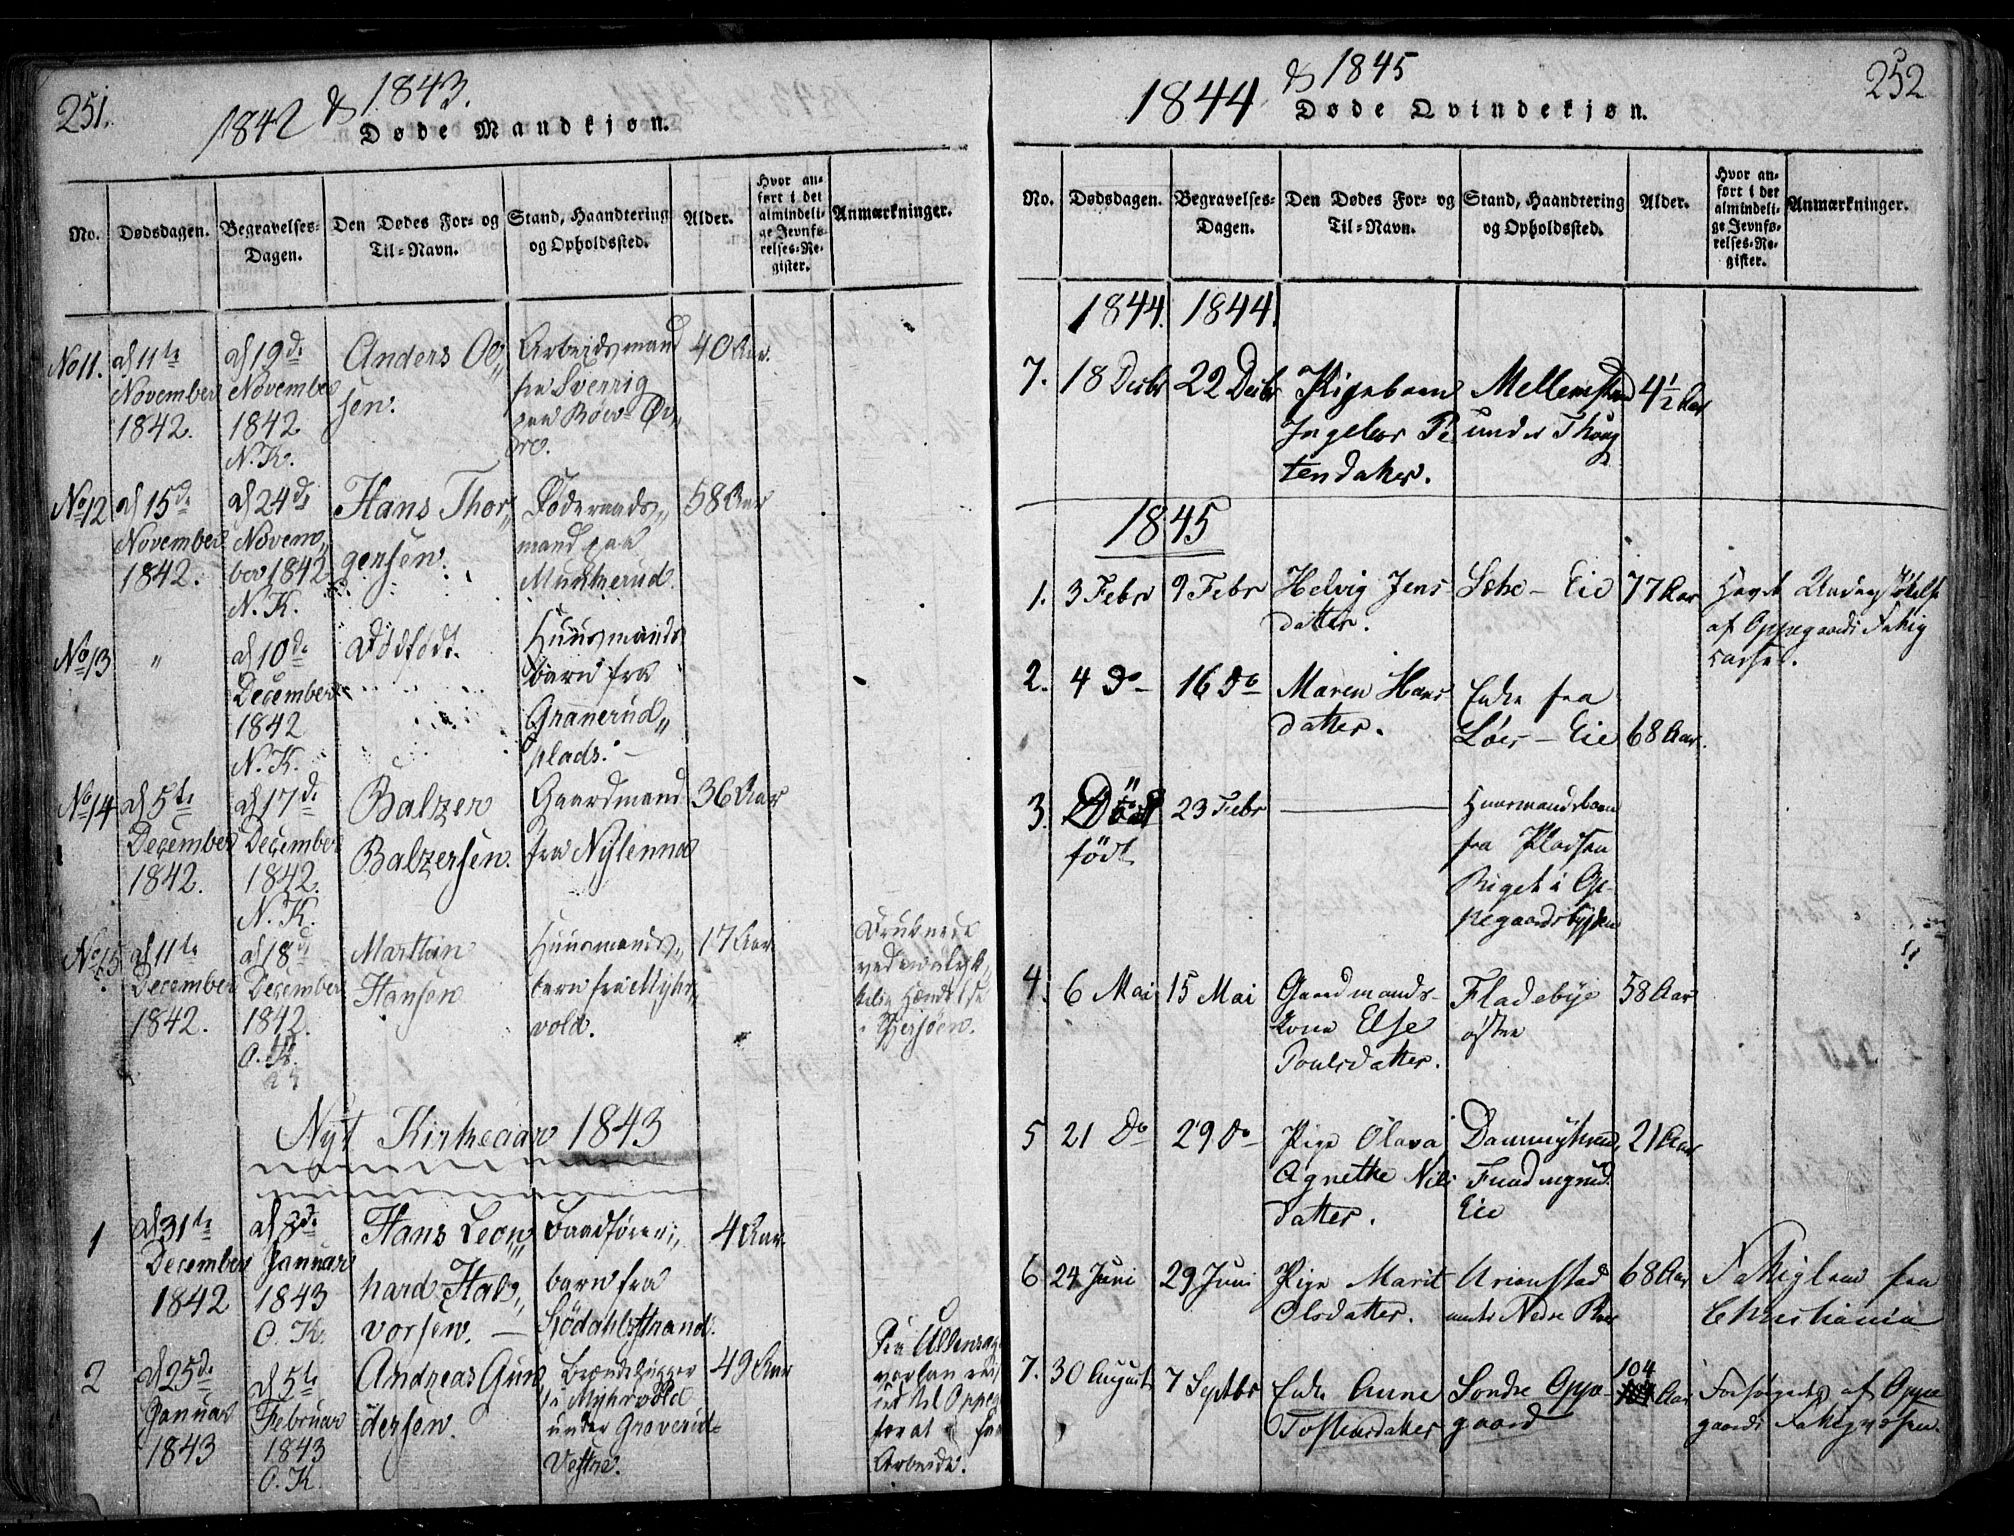 251.
1842 & 1843.
Døde Mandkjøn.
No.
Dødsdagen.
Begravelses-
Dagen.
Den Dødes For- og
Til-Navn.
Stand, Haandtering
og Opholdssted.
Alder.
Hvor an-
ført i det
almindeli-
ge Jevnfø-
relses-Re-
gister.
Anmærkninger.
No 11.
d 11te
November
1842.
d 19de
November
1842
N. K.
Anders Ol„
sen.
Arbeidsmand
fra Sverrig
paa Röer Øv„
re.
40 Aar.
No 12
d 15de
November
1842.
d 24de
Novem„
ber 1842
N. K.
Hans Thor„
gersen.
Föderaads„
mand paa
Munkerud.
58 Aar
No 13
„
d 10de
December
1842
N. K.
Dödfödt.
Huusmands
barn fra
Granerud„
plads.
No 14
d 5te
December
1842.
d 17de
December
1842.
N. K.
Balzer
Balzersen.
Gaardmand
fra Nylenna
36 Aar
No 15
d 11te
December
1842.
d 18de
December
1842.
O. K.
Marthin
Hansen
Huusmands„
barn fra Myhr„
vold.
17 Aar
Druknede
ved ulyk„
kelig Hændelse
i Gjersjöen.
Nyt Kirkeaar 1843
1
d 31te
December
1842
d 3de
Januar
1843
O. K.
Hans Leon„
hard Hal„
vorsen.
barn fra
4 Aar
2
d 25de
Januar
1843
d 5te
Februar
1843
O. K.
Andreas Gun„
dersen.
i Myhrvold
under Groverud-
Vestre.
49 Aar
Fra Ullensag„
Arbeide.
1844 & 1845
252
Døde Qvindekjøn.
No.
Dødsdagen.
Begravelses-
Dagen.
Den Dødes For- og
Til-Navn.
Stand, Haandtering
og Opholdssted.
Alder.
Hvor an-
ført i det
almindeli-
ge Jevnfø-
relses-Re-
gister.
Anmærkninger.
1844. 1844.
7.
18 Decbr
22 Decbr
Pigebarn
Ingebor Pe
tersdatter.
under
4½ Aar
1845
1.
3 Febr
9 Febr
Helvig Jens
datter.
Eie
77 Aar
Havt Understøttelse
af Oppegaards Fattig
casse.
2.
4 Do
16 Do
Maren Hans
datter.
Enke fra
Löer - Eie
68 Aar.
3.
Död
födt
23 Febr
Huusmandsbarn
fra Pladsen
Riget i Op-
pegaardsbygden
4.
6 Mai
15 Mai
Gaardmands-
kone Else
Poulsdatter.
Fladebye
østre
58 Aar
5
21 Do
29 Do
Pige Olava
Agnethe Nils
datter.
Eie
21 Aar
6
24 Juni
29 Juni
Pige Marit
Olsdatter.
under Nedre Roer
68 Aar
Fattiglem fra
Christiania
7.
30 August
7 Septbr
Enke Anne
Tostensdatter
Söndre Oppe-
gaard
104
Aar
Forsørgedes af Oppe
gaards Fattigvæsen.